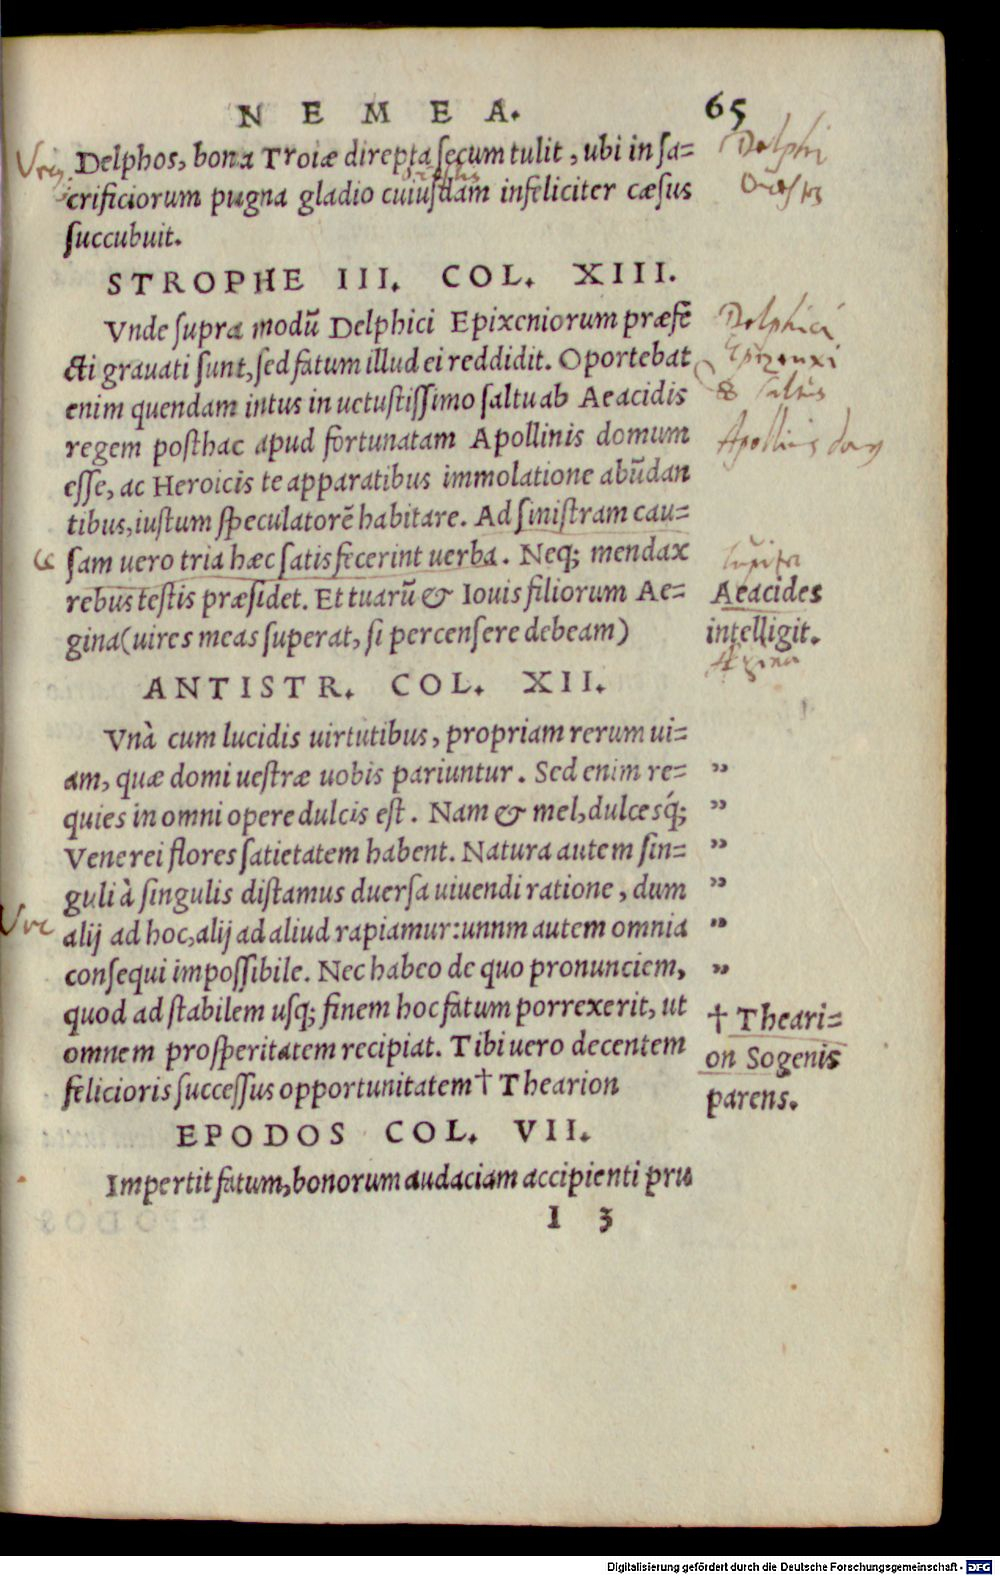 NEMEA. 65
Delphos, bona Troiæ direpta secum tulit, ubi in sa=
crificiorum pugna gladio cuiusdam infeliciter cæsus
succubuit.
Delphi
STROPHE III. COL. XIII.
Vnde supra modũ Delphici Epixeniorum præfe̅
cti grauati sunt, sed fatum illud ei reddidit. Oportebat
enim quendam intus in uetustissimo saltu ab Aeacidis
regem posthac apud fortunatam Apollinis domum
esse, ac Heroicis te apparatibus immolatione abũdan
tibus, iustum speculatorẽ habitare. Ad sinistram cau=
sam uero tria hæc satis fecerint uerba. Neq; mendax
rebus testis præsidet. Et tuarũ & Iouis filiorum Ae=
gina (uires meas superat, si percensere debeam)
Delphici
Apollinis
Iupiter
Aeacides
intelligit.
Aegina
ANTISTR. COL. XII.
Vnà cum lucidis uirtutibus, propriam rerum ui=
am, quæ domi uestræ uobis pariuntur. Sed enim re= ”
quies in omni opere dulcis est. Nam & mel, dulcesq́; ”
Venerei flores satietatem habent. Natura autem sin= ”
guli à singulis distamus duersa uiuendi ratione, dum ”
alij ad hoc, alij ad aliud rapiamur: unnm autem omnia ”
consequi impossibile. Nec habeo de quo pronunciem, ”
quod ad stabilem usq; finem hoc fatum porrexerit, ut
omnem prosperitatem recipiat. Tibi uero decentem
felicioris successus opportunitatem † Thearion
† Theari=
on Sogenis
parens.
EPODOS COL. VII.
Impertit fatum, bonorum audaciam accipienti pru
I 3
Digitalisierung gefördert durch die Deutsche Forschungsgemeinschaft - DFG